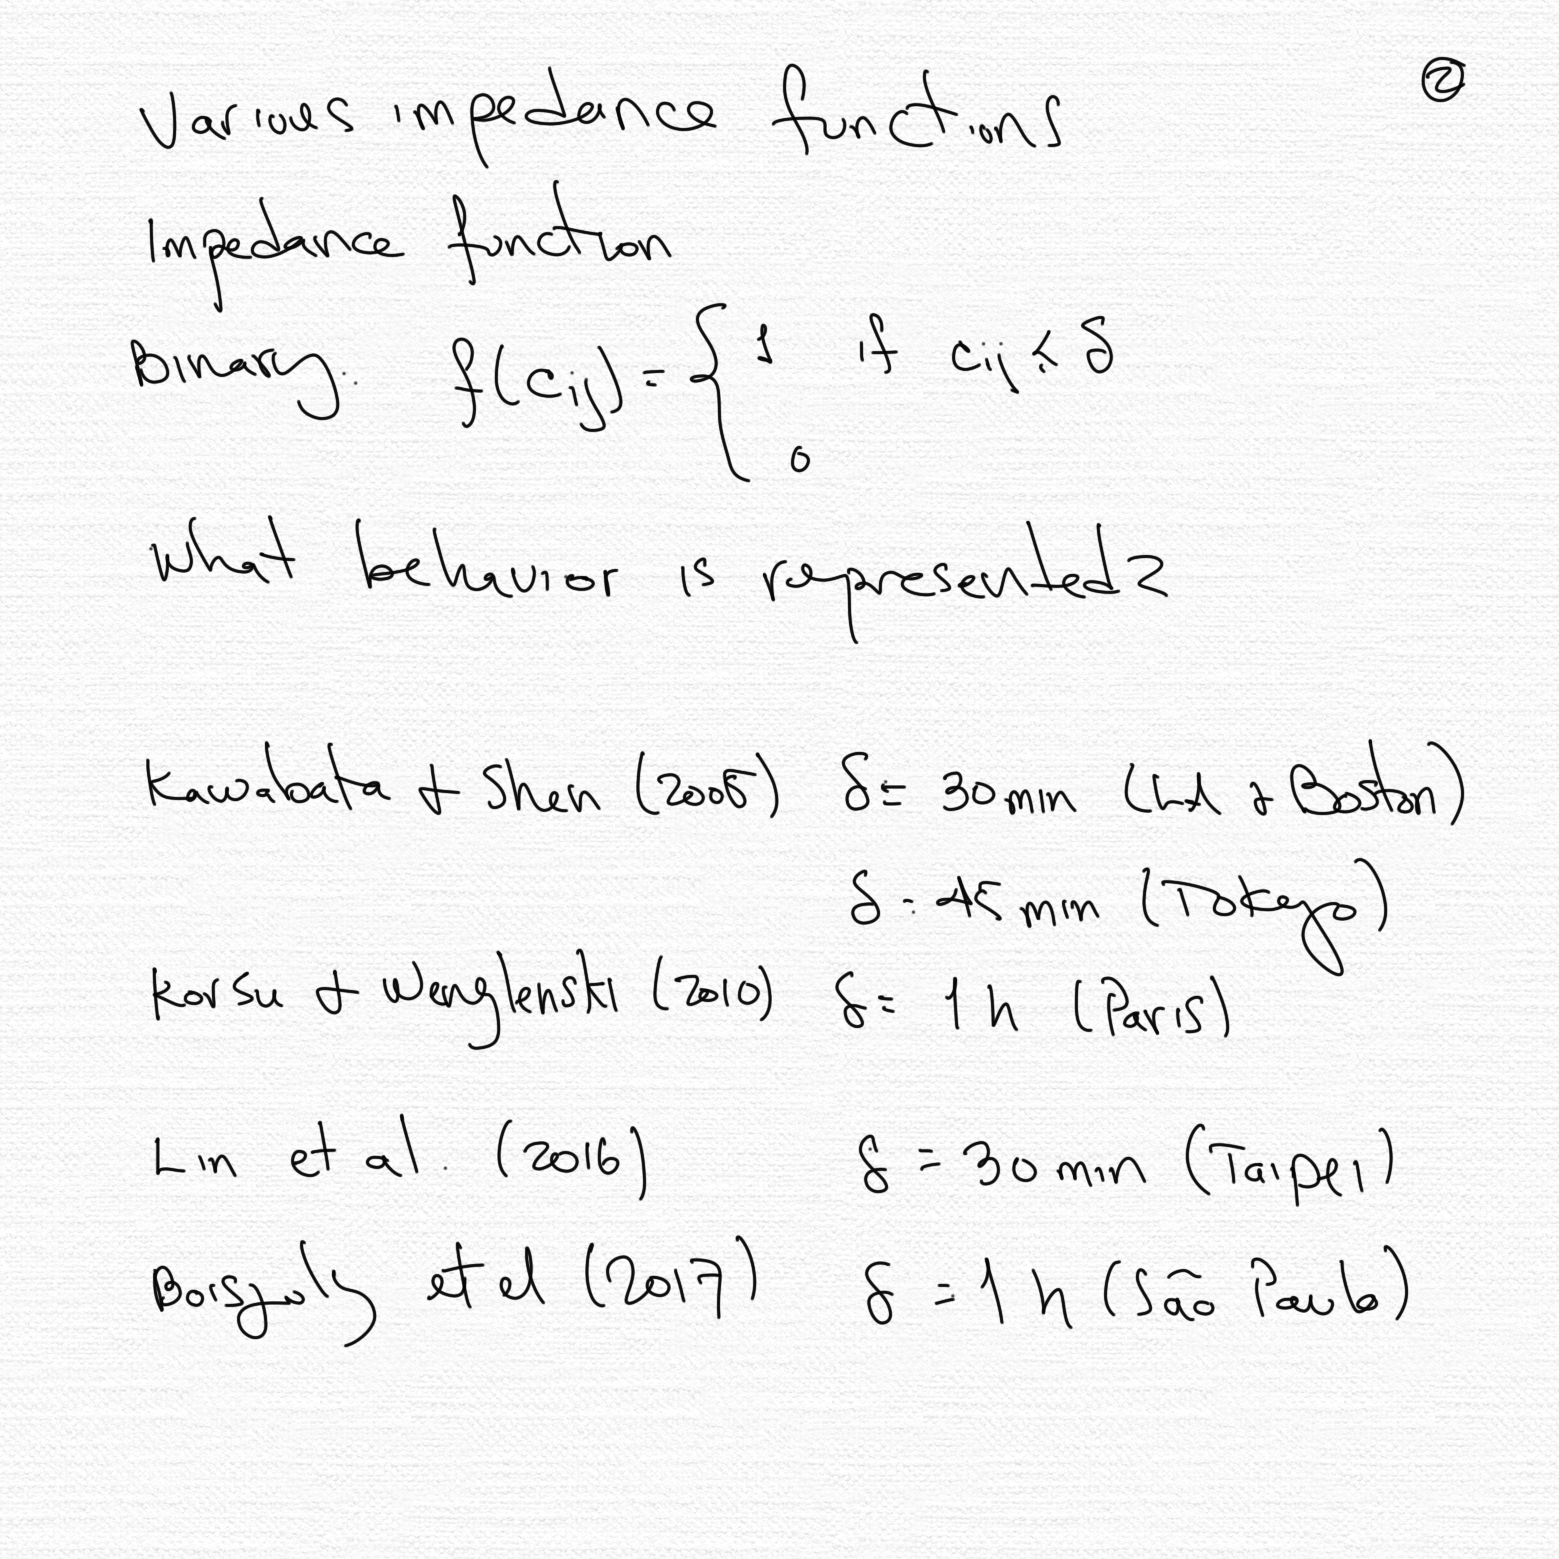 ②
Various impedance functions
Impedance function
Binary: f(cij) = { 1 if cij ≤ δ
0
What behavior is represented?
Kawabata & Shen (2006) δ = 30 min (LA & Boston)
δ = 45 min (Tokeyo)
Korsu & Wenglenski (2010) δ = 1 h (Paris)
Lin et al. (2016) δ = 30 min (Taipei)
Boisjoly et al (2017) δ = 1 h (São Paulo)